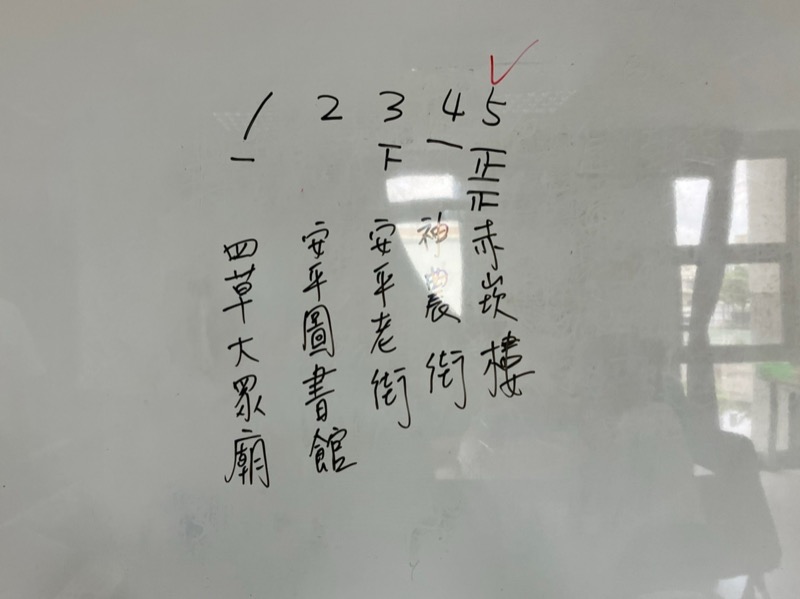 1 2 3 4 5
一 下 一 正正
四草大眾廟
安平圖書館
安平老街
神農街
赤崁樓